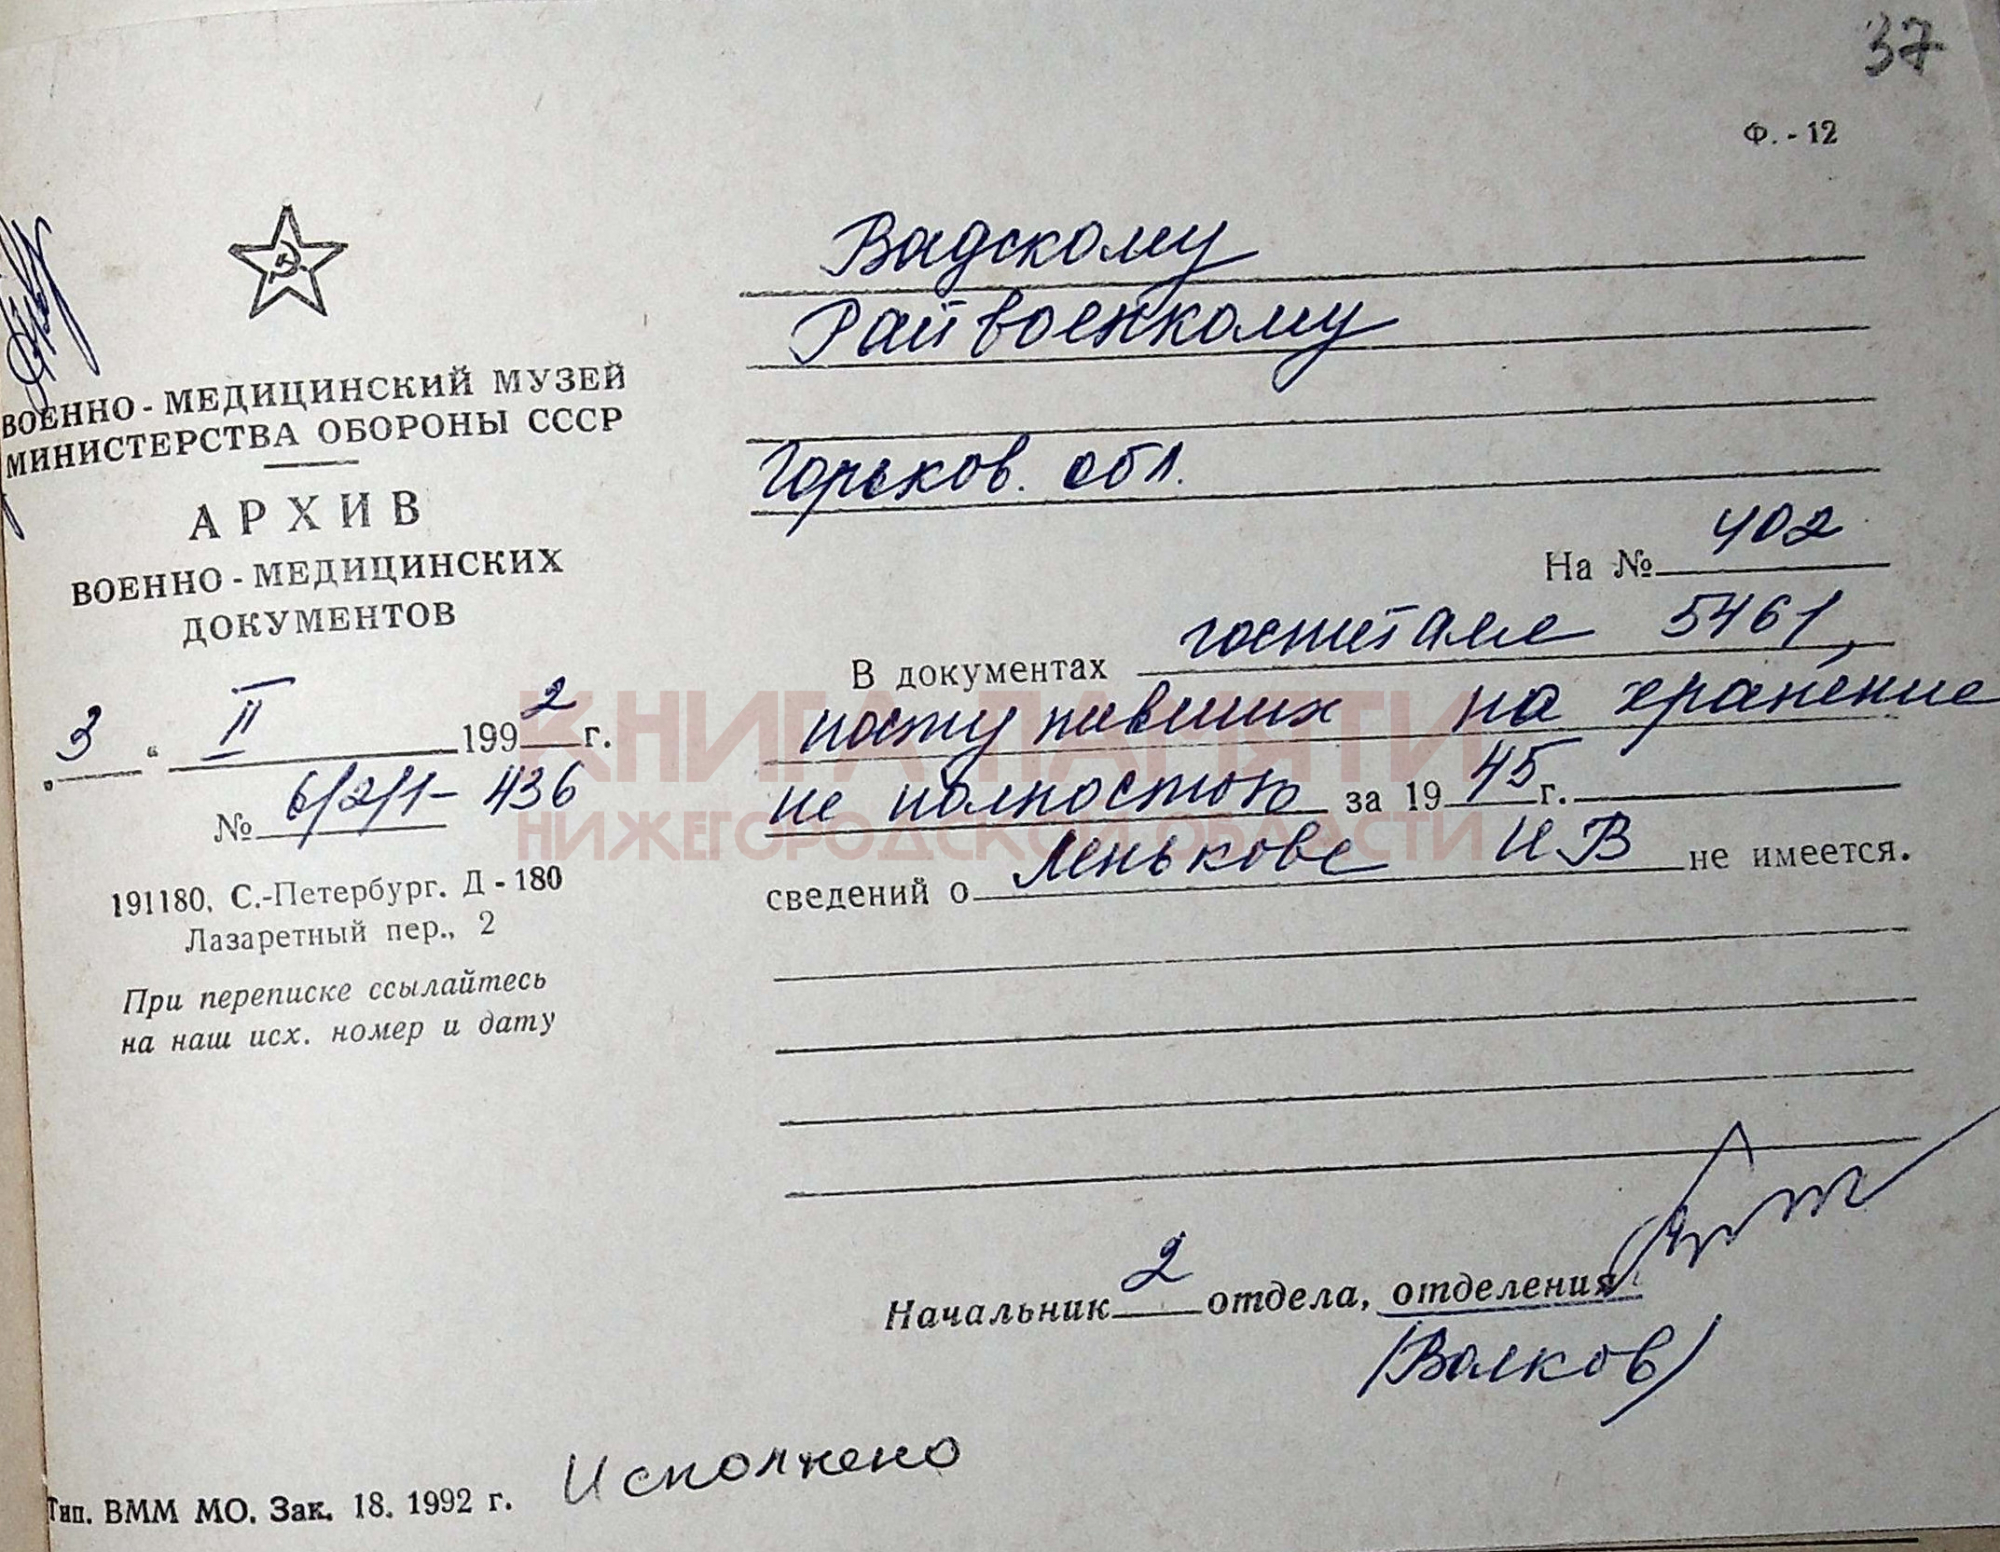 37
Ф. - 12
ВОЕННО - МЕДИЦИНСКИЙ МУЗЕЙ
МИНИСТЕРСТВА ОБОРОНЫ СССР
АРХИВ
ВОЕННО - МЕДИЦИНСКИХ
ДОКУМЕНТОВ
„3 “ II 1992 г.
№ 6/2/1- 436
191180, С.-Петербург. Д - 180
Лазаретный пер., 2
При переписке ссылайтесь
на наш исх. номер и дату
Вадскому
Райвоенкому
Горьков. обл.
На № 402
В документах госпиталя 5461,
поступивших на хранение
не полностью за 19 45 г.
сведений о Ленькове И В не имеется.
Начальник 2 отдела, отделения
(Волков)
Исполнено
Тип. ВММ МО. Зак. 18. 1992 г.
КНИГА ПАМЯТИ
НИЖЕГОРОДСКОЙ ОБЛАСТИ